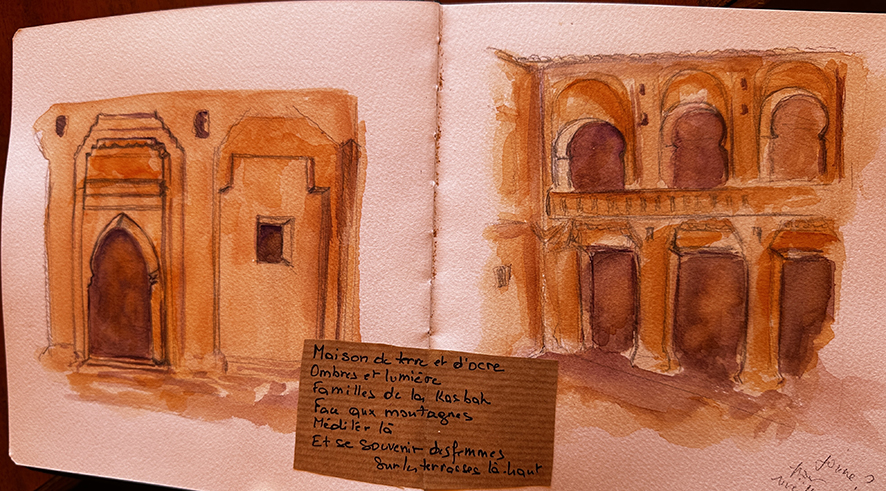 Maison de terre et d'ocre
Ombres et lumière
Familles de la Kasbah
Face aux montagnes
Méditer là
Et se souvenir des femmes
Sur les terrasses là-haut